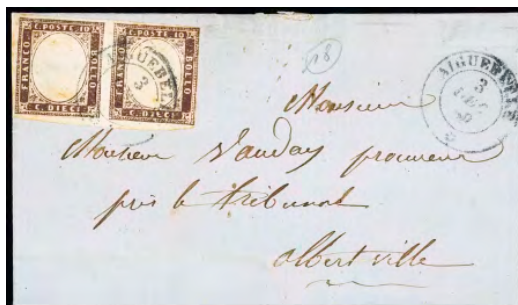 C. POSTE 10
FRANCO
BOLLO
C. DIECI
C. POSTE 10
FRANCO
BOLLO
C. DIECI
AIGUEBELLE
3
18
AIGUEBELLE
3
Monsieur
Monsieur Vauday procureur
près le tribunal
albertville